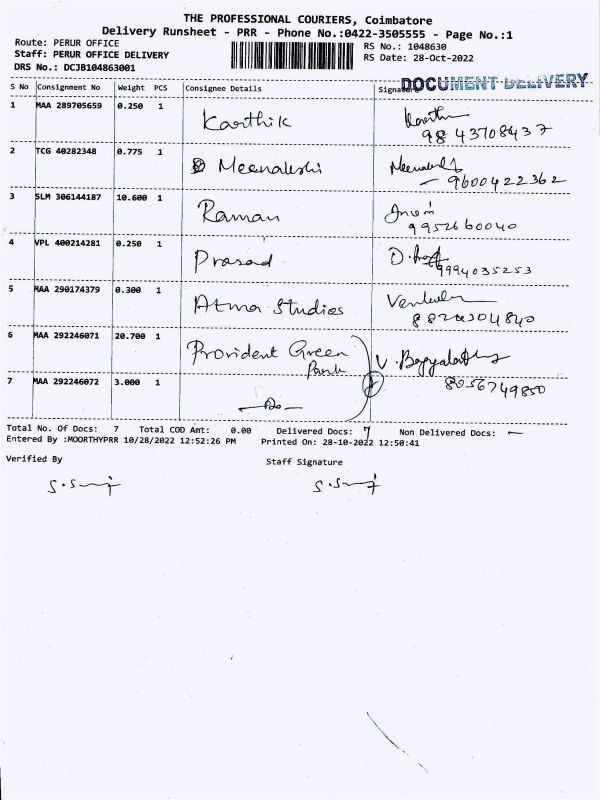 THE PROFESSIONAL COURIERS, Coimbatore
Delivery Runsheet - PRR - Phone No.:0422-3505555 - Page No.:1
Route: PERUR OFFICE
Staff: PERUR OFFICE DELIVERY
DRS No.: DCJB104863001
RS No.: 1048630
RS Date: 28-Oct-2022
DOCUMENT DELIVERY
S No Consignment No Weight PCS Consignee Details Signature
1 MAA 289705659 0.250 1 Karthik
9843708437
2 TCG 40282348 0.775 1 Meenakshi
9600422362
3 SLM 306144187 10.600 1 Raman
9952660040
4 VPL 400214281 0.250 1 Prasad
9994035253
5 MAA 290174379 0.300 1 Atma Studies
6 MAA 292246071 20.700 1 Provident Green
Park
7 MAA 292246072 3.000 1 —Do—
8056749850
Total No. Of Docs: 7 Total COD Amt: 0.00 Delivered Docs: 7 Non Delivered Docs: —
Entered By :MOORTHYPRR 10/28/2022 12:52:26 PM Printed On: 28-10-2022 12:50:41
Verified By Staff Signature